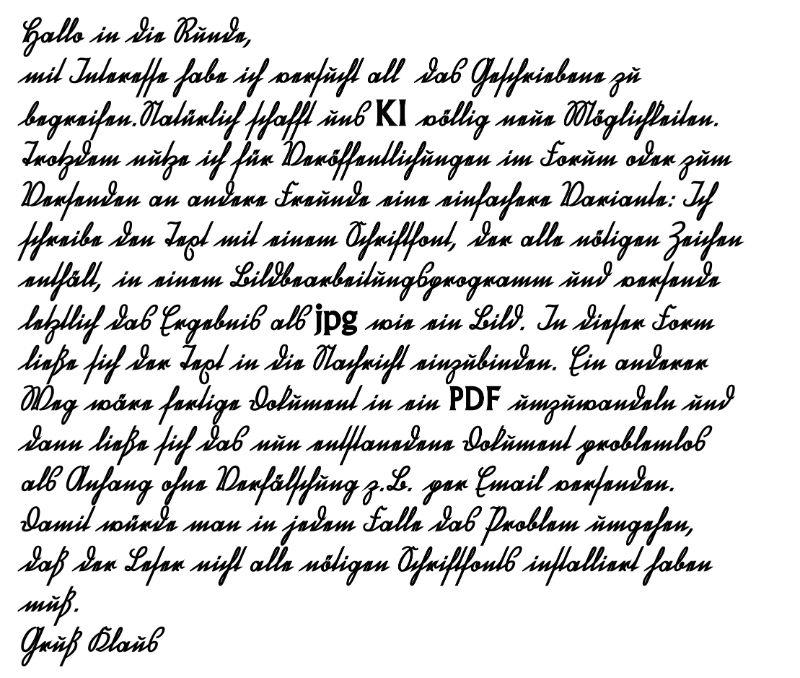 Hallo in die Runde,
mit Interesse habe ich versucht all das Geschriebene zu
begreifen. Natürlich schafft uns KI völlig neue Möglichkeiten.
Trotzdem nutze ich für Veröffentlichungen im Forum oder zum
Versenden an andere Freunde eine einfachere Variante: Ich
schreibe den Text mit einem Schriftfont, der alle nötigen Zeichen
enthält, in einem Bildbearbeitungsprogramm und versende
letztlich das Ergebnis als jpg wie ein Bild. In dieser Form
ließe sich der Text in die Nachricht einzubinden. Ein anderer
Weg wäre fertige Dokument in ein PDF umzuwandeln und
dann ließe sich das nun entstanedene Dokument problemlos
als Anhang ohne Verfälschung z.B. per Email versenden.
Damit würde man in jedem Falle das Problem umgehen,
daß der Leser nicht alle nötigen Schriftfonts installiert haben
muß.
Gruß Klaus